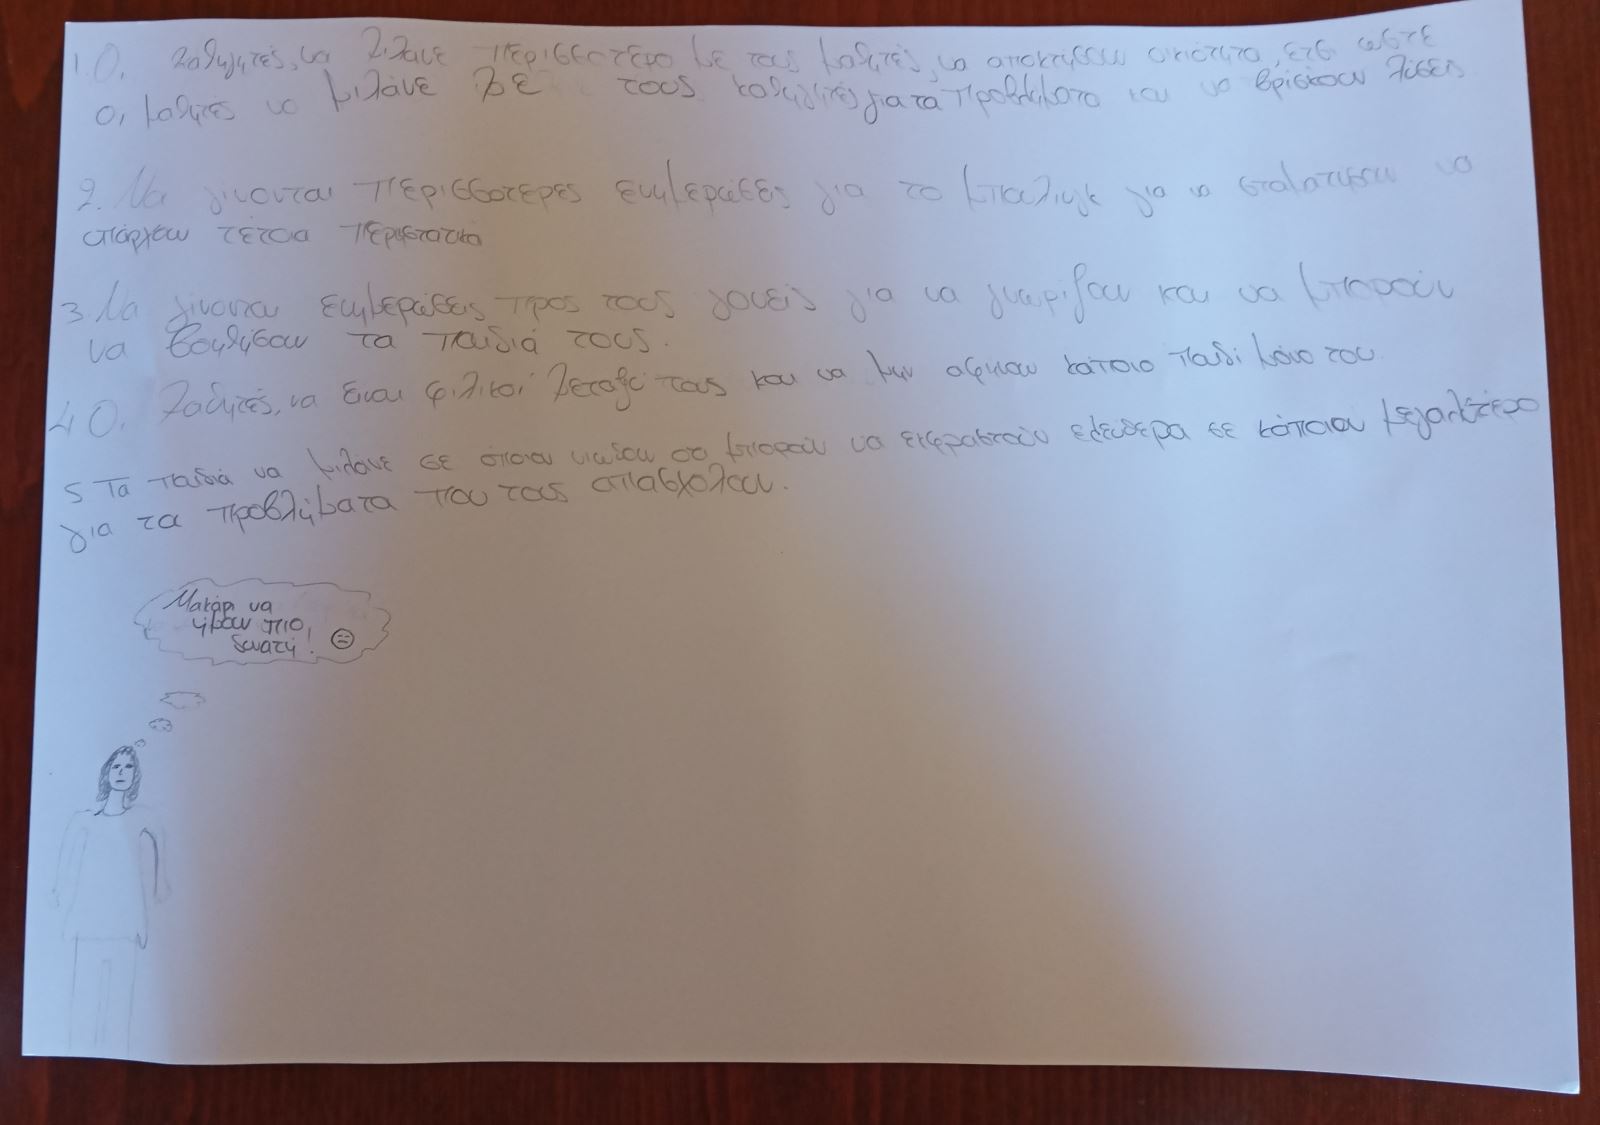 1. Οι καθηγητές να μιλάνε περισσότερο με τους μαθητές, να αποκτήσουν οικιότητα, έτσι ώστε
οι μαθητές να μιλάνε με τους καθηγητές για τα προβλήματα και να βρίσκουν λύσεις
2. Να γίνονται περισσότερες ενημερώσεις για το μπούλινγκ για να σταματήσουν να
υπάρχουν τέτοια περιστατικά
3. Να γίνονται ενημερώσεις προς τους γονείς για να γνωρίζουν και να μπορούν
να βοηθήσουν τα παιδιά τους.
4 Οι μαθητές να είναι φιλικοί μεταξύ τους και να μην αφήνουν κάποιο παιδί μόνο του.
5 Τα παιδιά να μιλάνε σε όποιον νιώθουν οτι μπορούν να εκφραστούν ελεύθερα σε κάποιον μεγαλύτερο
για τα προβλήματα που τους απασχολούν.
Μακάρι να
ήμουν πιο
δυνατή!